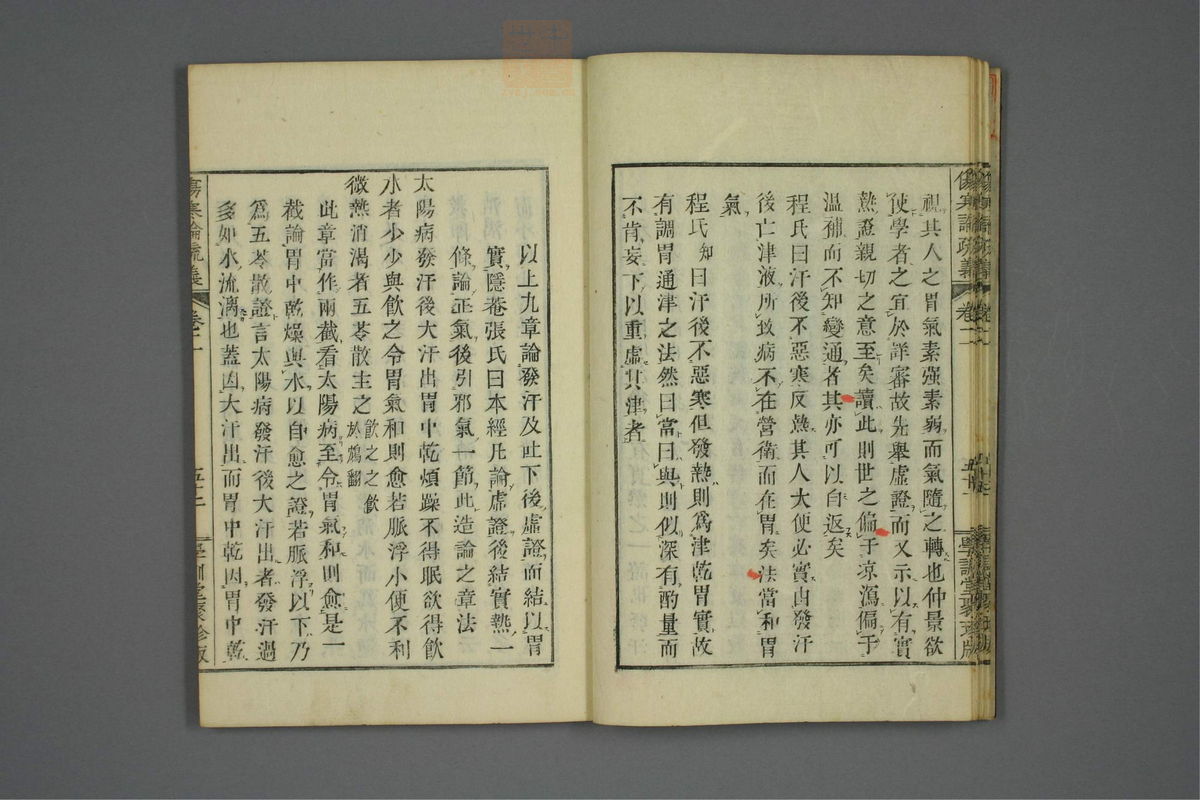 視其人之胃氣素强素弱而氣隨之轉也仲景欲
使學者之宜於詳審故先舉虚證而又示以有實
熱證親切之意至矣讀此則世之偏于凉瀉偏于
溫補而不知變通者其亦可以自返矣
程氏曰汗後不惡寒反熱其人大便必實由發汗
後亡津液所致病不在營衛而在胃矣法當和胃
氣
程氏知曰汗後不惡寒但發熱則爲津乾胃實故
有調胃通津之法然曰當曰與則似深有酌量而
不肯妄下以重虚其津者
以上九章論發汗及吐下後虚證而結以胃
實隱菴張氏曰本經凡論虚證後結實熱一
條論正氣後引邪氣一節此造論之章法
太陽病發汗後大汗出胃中乾煩躁不得眠欲得飮
水者少少與飮之令胃氣和則愈若脈浮小便不利
微熱消渴者五苓散主之飮之之飮於鴆翻
此章當作兩截看太陽病至令胃氣和則愈是一
截論胃中乾燥與水以自愈之證若脈浮以下乃
爲五苓散證言太陽病發汗後大汗出者發汗過
多如水流漓也蓋因大汗出而胃中乾因胃中乾
傷寒論疏義
卷二
五十二